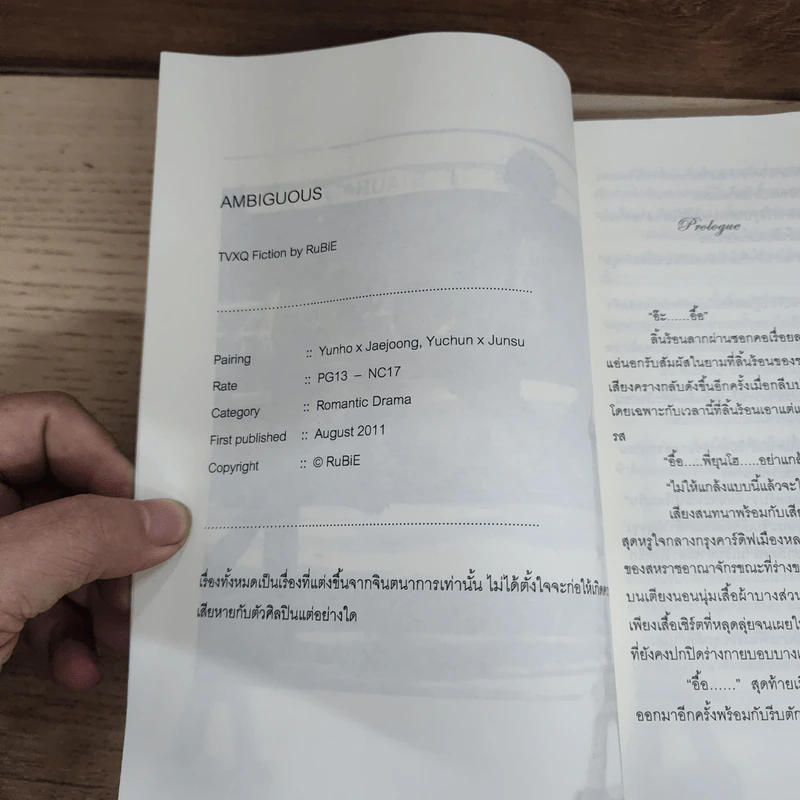 AMBIGUOUS
TVXQ Fiction by RuBiE
Pairing :: Yunho x Jaejoong, Yuchun x Junsu
Rate :: PG13 – NC17
Category :: Romantic Drama
First published :: August 2011
Copyright :: © RuBiE
เรื่องทั้งหมดเป็นเรื่องที่แต่งขึ้นจากจินตนาการเท่านั้น ไม่ได้ตั้งใจจะก่อให้เกิด
เสียหายกับตัวศิลปินแต่อย่างใด
Prologue
“อ๊ะ.....อื้อ”
ลิ้นร้อนลากผ่านซอกคอเรื่อย
แอ่นอกรับสัมผัสในยามที่ลิ้นร้อนของ
เสียงครางกลับดังขึ้นอีกครั้งเมื่อกลีบ
โดยเฉพาะกับเวลานี้ที่ลิ้นร้อนเอาแต่
รส
“อื้อ.....พี่ยุนโฮ.....อย่าแกล้
“ไม่ให้แกล้งแบบนี้แล้วจะ
เสียงสนทนาพร้อมกับเสีย
สุดหรูใจกลางกรุงคาร์ดิฟเมืองหล
ของสหราชอาณาจักรขณะที่ร่าง
บนเตียงนอนนุ่มเสื้อผ้าบางส่วน
เพียงเสื้อเชิร์ตที่หลุดลุ่ยจนเผย
ที่ยังคงปกปิดร่างกายบอบบาง
“อื้อ......” สุดท้าย
ออกมาอีกครั้งพร้อมกับรีบตัก